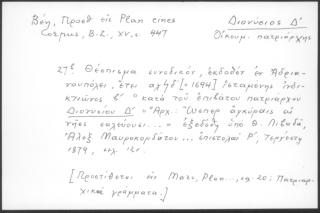 Βέη, Προσθ. εἰς Plan eines
Corpus, B.Z., XV, σ. 447
Διονύσιος Δ΄
Οἰκουμ. πατριάρχης
27. Θέσπισμα συνοδικόν, ἐκδοθὲν ἐν Ἀδρια-
νουπόλει, ἔτει αχϟδ [= 1694] ἱσταμένης ἰνδι-
κτιῶνος β΄ κατὰ τοῦ ἐπιβάτου πατριάρχου
Διονυσίου Δ΄ = Ἀρχ.: "Ὥσπερ ἀγκύραις αἱ
νῆες σαλεύουσι... = ἐξεδόθη ὑπὸ Θ. Λιβαδᾶ,
Ἀλεξ. Μαυροκορδάτου ... ἐπιστολαὶ Ρ΄, Τεργέστῃ
1879, σελ.
[Προστίθεται εἰς Plan..., σ. 20: Πατριαρ-
χικὰ γράμματα.]